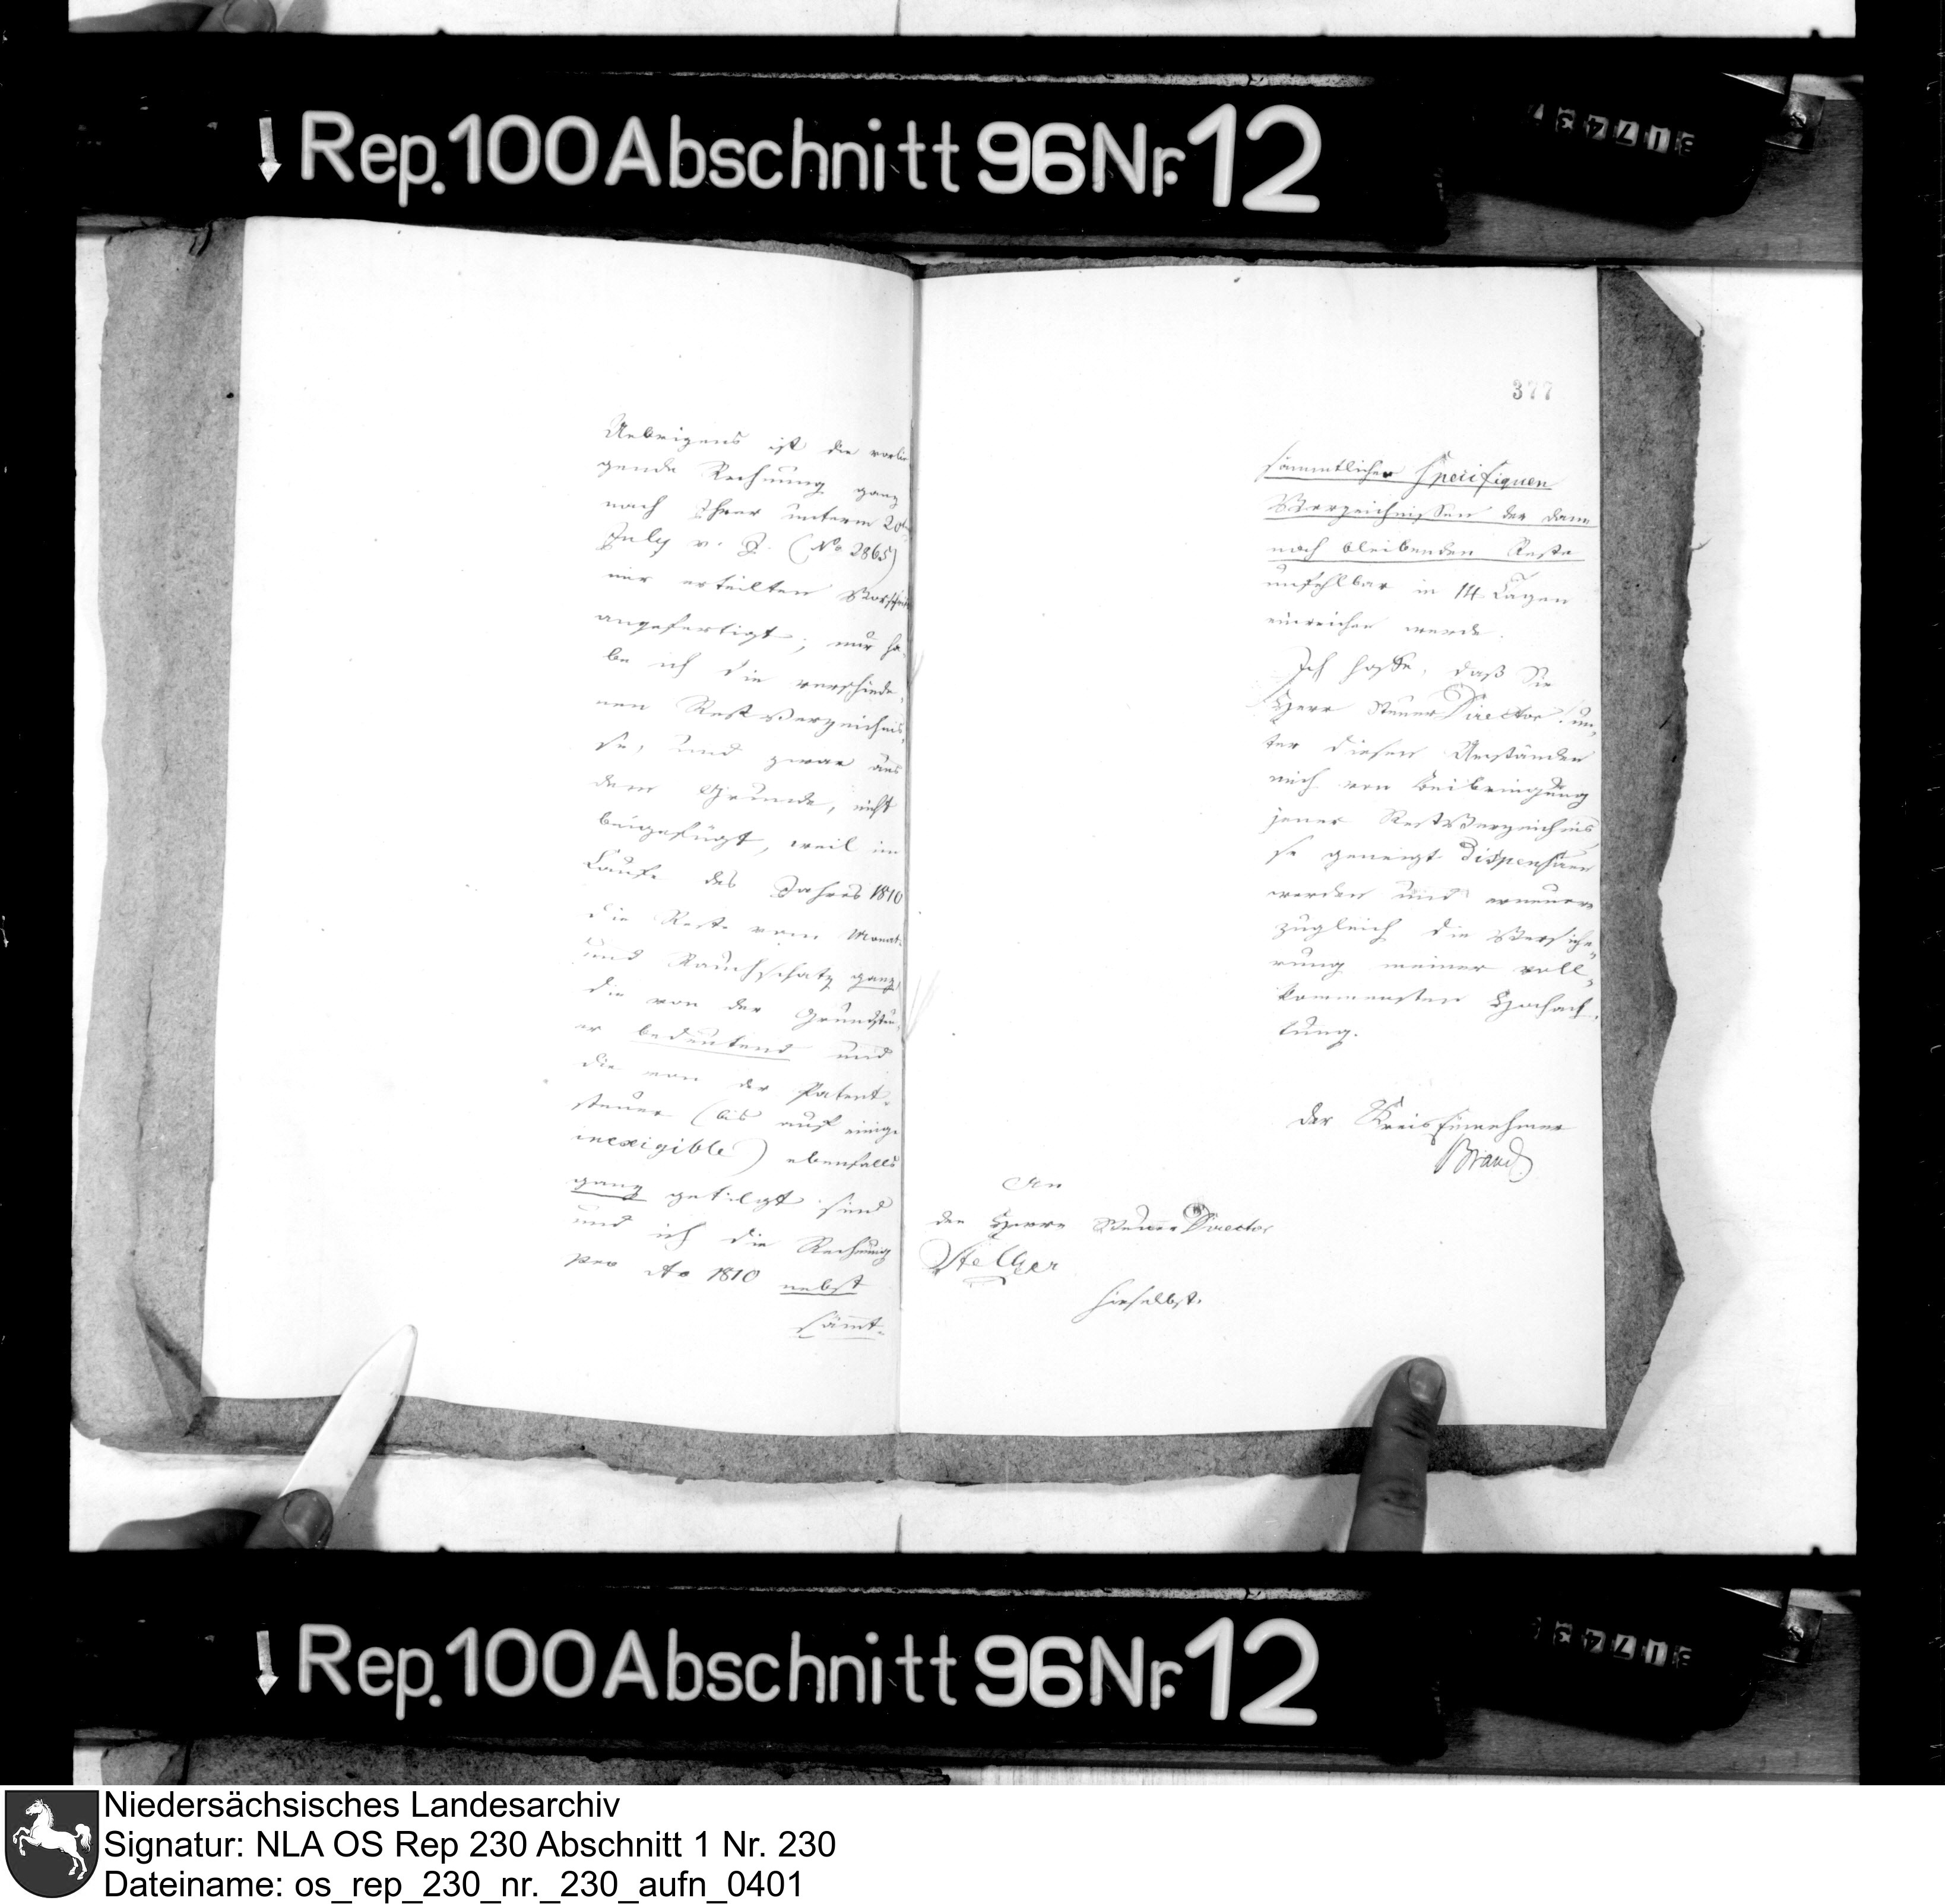 ↓ Rep. 100 Abschnitt 96 Nr. 12
Uebrigens ist die vorlie
gende Rechnung ganz
nach Ihrer unterm 20t
July v. J. (No 2865)
mir erteilten Vorschrift
angefertigt; nur ha-
be ich die verschiede,
nen Rest Verzeichnis,
se, und zwar aus
dem Grunde, nicht
beigefügt, weil im
Laufe des Jahres 1810
die Reste vom Monat-
und Rauchschatz ganz
die von der Grundsteu,
er bedeutend und
die von der Patent-
steuer (bis auf einige
inexigible) ebenfalls
ganz getilgt sind
und ich die Rechnung
pro Ao 1810 nebst
sämt-
377
sämmtlicher Specifiquen
Verzeichnissen der dann
noch bleibenden Reste
unfehlbar in 14 Tagen
einreichen werde.
Ich hoffe, daß Sie
Herr Steuer Director, un,
ter diesen Umständen
mich von Beibringung
jener Rest Verzeichnis
se geneigt dispensiren
werden und erneuere
zugleich die Versiche,
rung meiner voll,
kommensten Hochach,
tung.
Der Kreis Einnehmer
Brand
An
den Herrn Steuer Director
Stelger
hieselbst.
↓ Rep. 100 Abschnitt 96 Nr. 12
Niedersächsisches Landesarchiv
Signatur: NLA OS Rep 230 Abschnitt 1 Nr. 230
Dateiname: os_rep_230_nr._230_aufn_0401